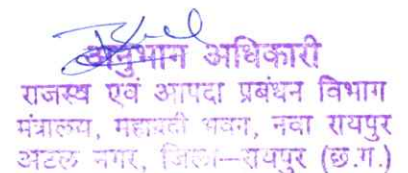 अनुभाग अधिकारी
राजस्व एवं आपदा प्रबंधन विभाग
मंत्रालय, महानदी भवन, नवा रायपुर
अटल नगर, जिला–रायपुर (छ.ग.)